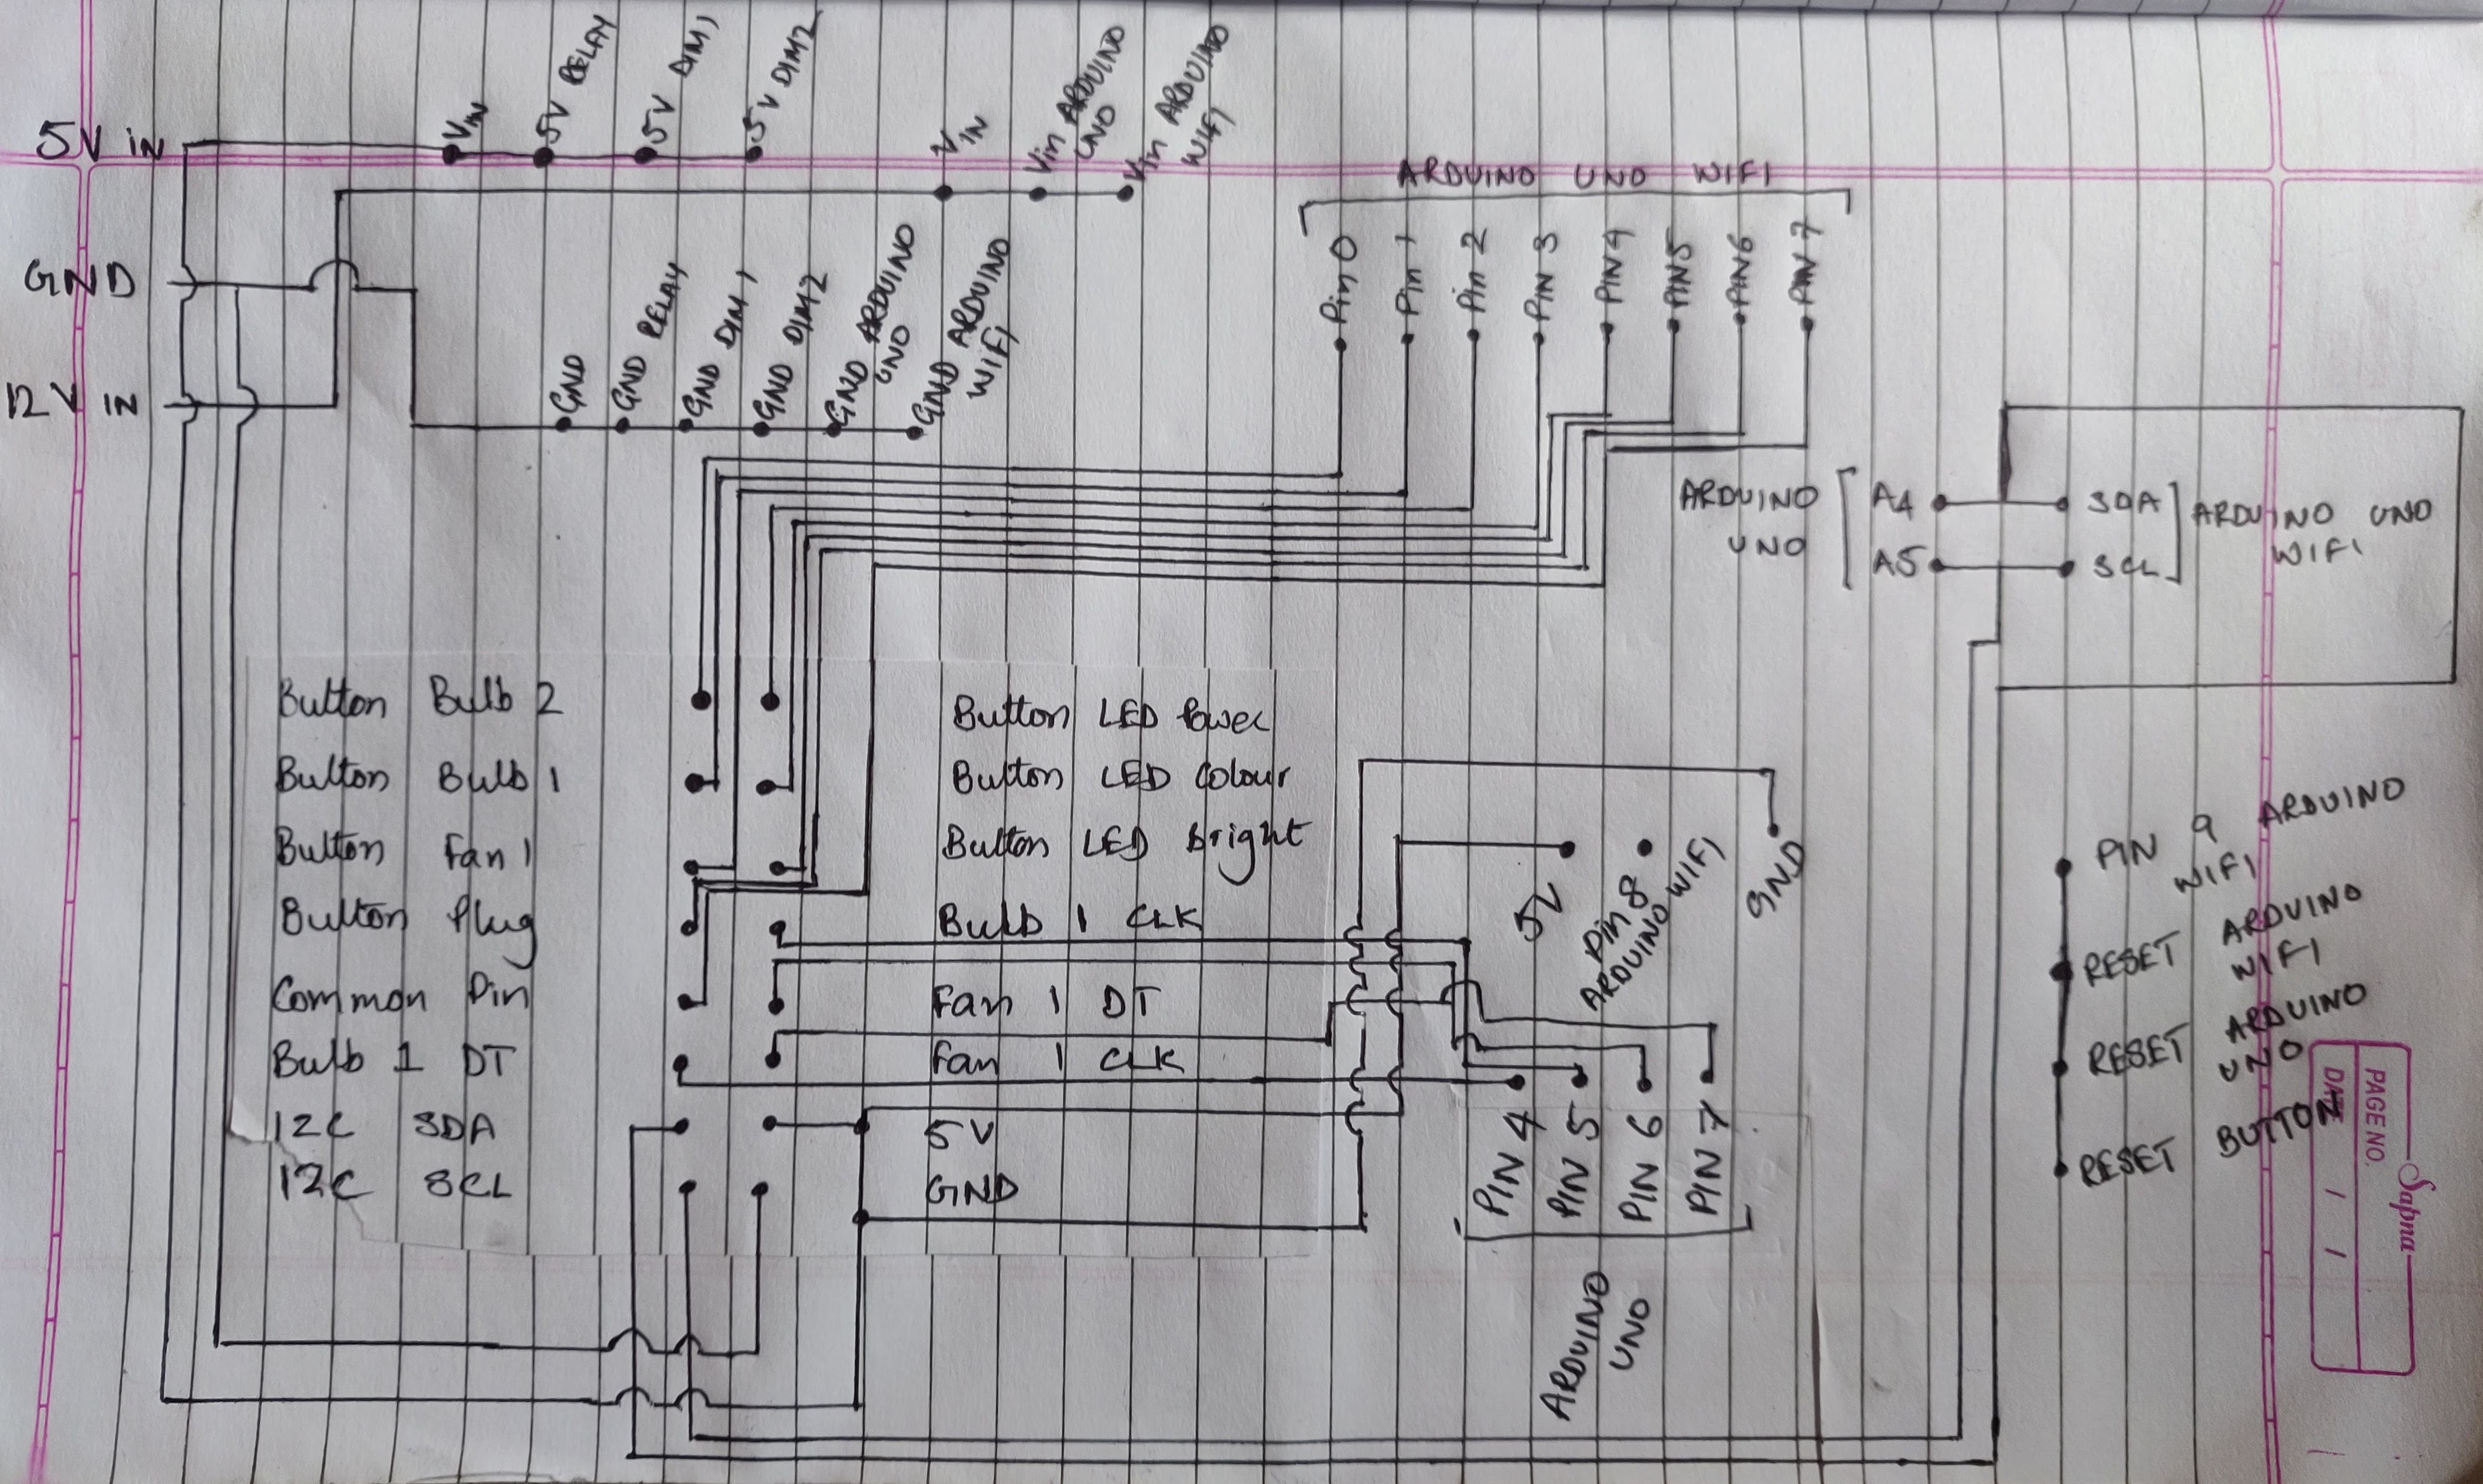 5V IN
GND
12V IN
VIN
5V RELAY
5V DIM1
5V DIM2
VIN
Vin ARDUINO
UNO
Vin ARDUINO
WIFI
GND
GND RELAY
GND DIM 1
GND DIM2
GND ARDUINO
UNO
GND ARDUINO
WIFI
ARDUINO UNO WIFI
Pin 0
Pin 1
Pin 2
PIN 3
PIN 4
PIN5
PIN6
PIN 7
ARDUINO
UNO
A4
A5
SDA
SCL
ARDUINO UNO
WIFI
Button Bulb 2
Button Bulb 1
Button Fan 1
Button Plug
Common Pin
Bulb 1 DT
I2C SDA
I2C SCL
Button LED Power
Button LED Colour
Button LED Bright
Bulb 1 CLK
Fan 1 DT
Fan 1 CLK
5V
GND
5V
Pin 8
ARDUINO WIFI
GND
PIN 4
PIN 5
PIN 6
PIN 7
ARDUINO
UNO
PIN 9 ARDUINO
WIFI
RESET ARDUINO
WIFI
RESET ARDUINO
UNO
RESET BUTTON
Sapna
PAGE NO.
DATE / /